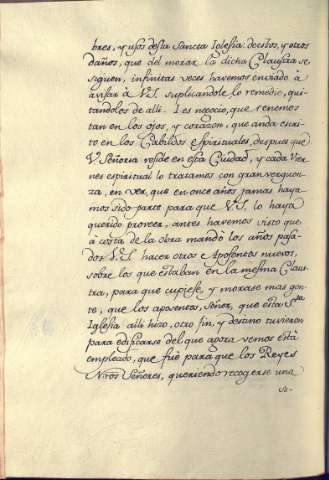 bres, y usos desta Sancta Iglesia: destos, y otros
daños, que del morar la dicha Claustra se
siguen, infinitas veces havemos enviado à
avisar à V.S. suplicandole lo remedie, qui-
tandolos de alli. I es negocio, que tenemos
tan en los ojos, y corazon, que anda escri-
to en los Cabildos espirituales, despues que
V Señoria reside en esta Ciudad, y cada vier-
nes espiritual lo tratamos con gran verguen-
za, en ver, que en once años jamas haya-
mos sido parte para que V.S. lo haya
querido proveer, antes havemos visto que
à costa de la obra mandò los años pasa-
dos V.S. hacer otros Aposentos nuevos,
sobre los que estaban en la mesma Claus-
tra, para que cupiese, y morase mas gen-
te, que los aposentos, Señor, que esta Sta
Iglesia alli hizo, otro fin, y destino tuvieron
para edificarse del que agora vemos està
empleado, que fuè para que los Reyes
Nros Señores, queriendo recogerse una